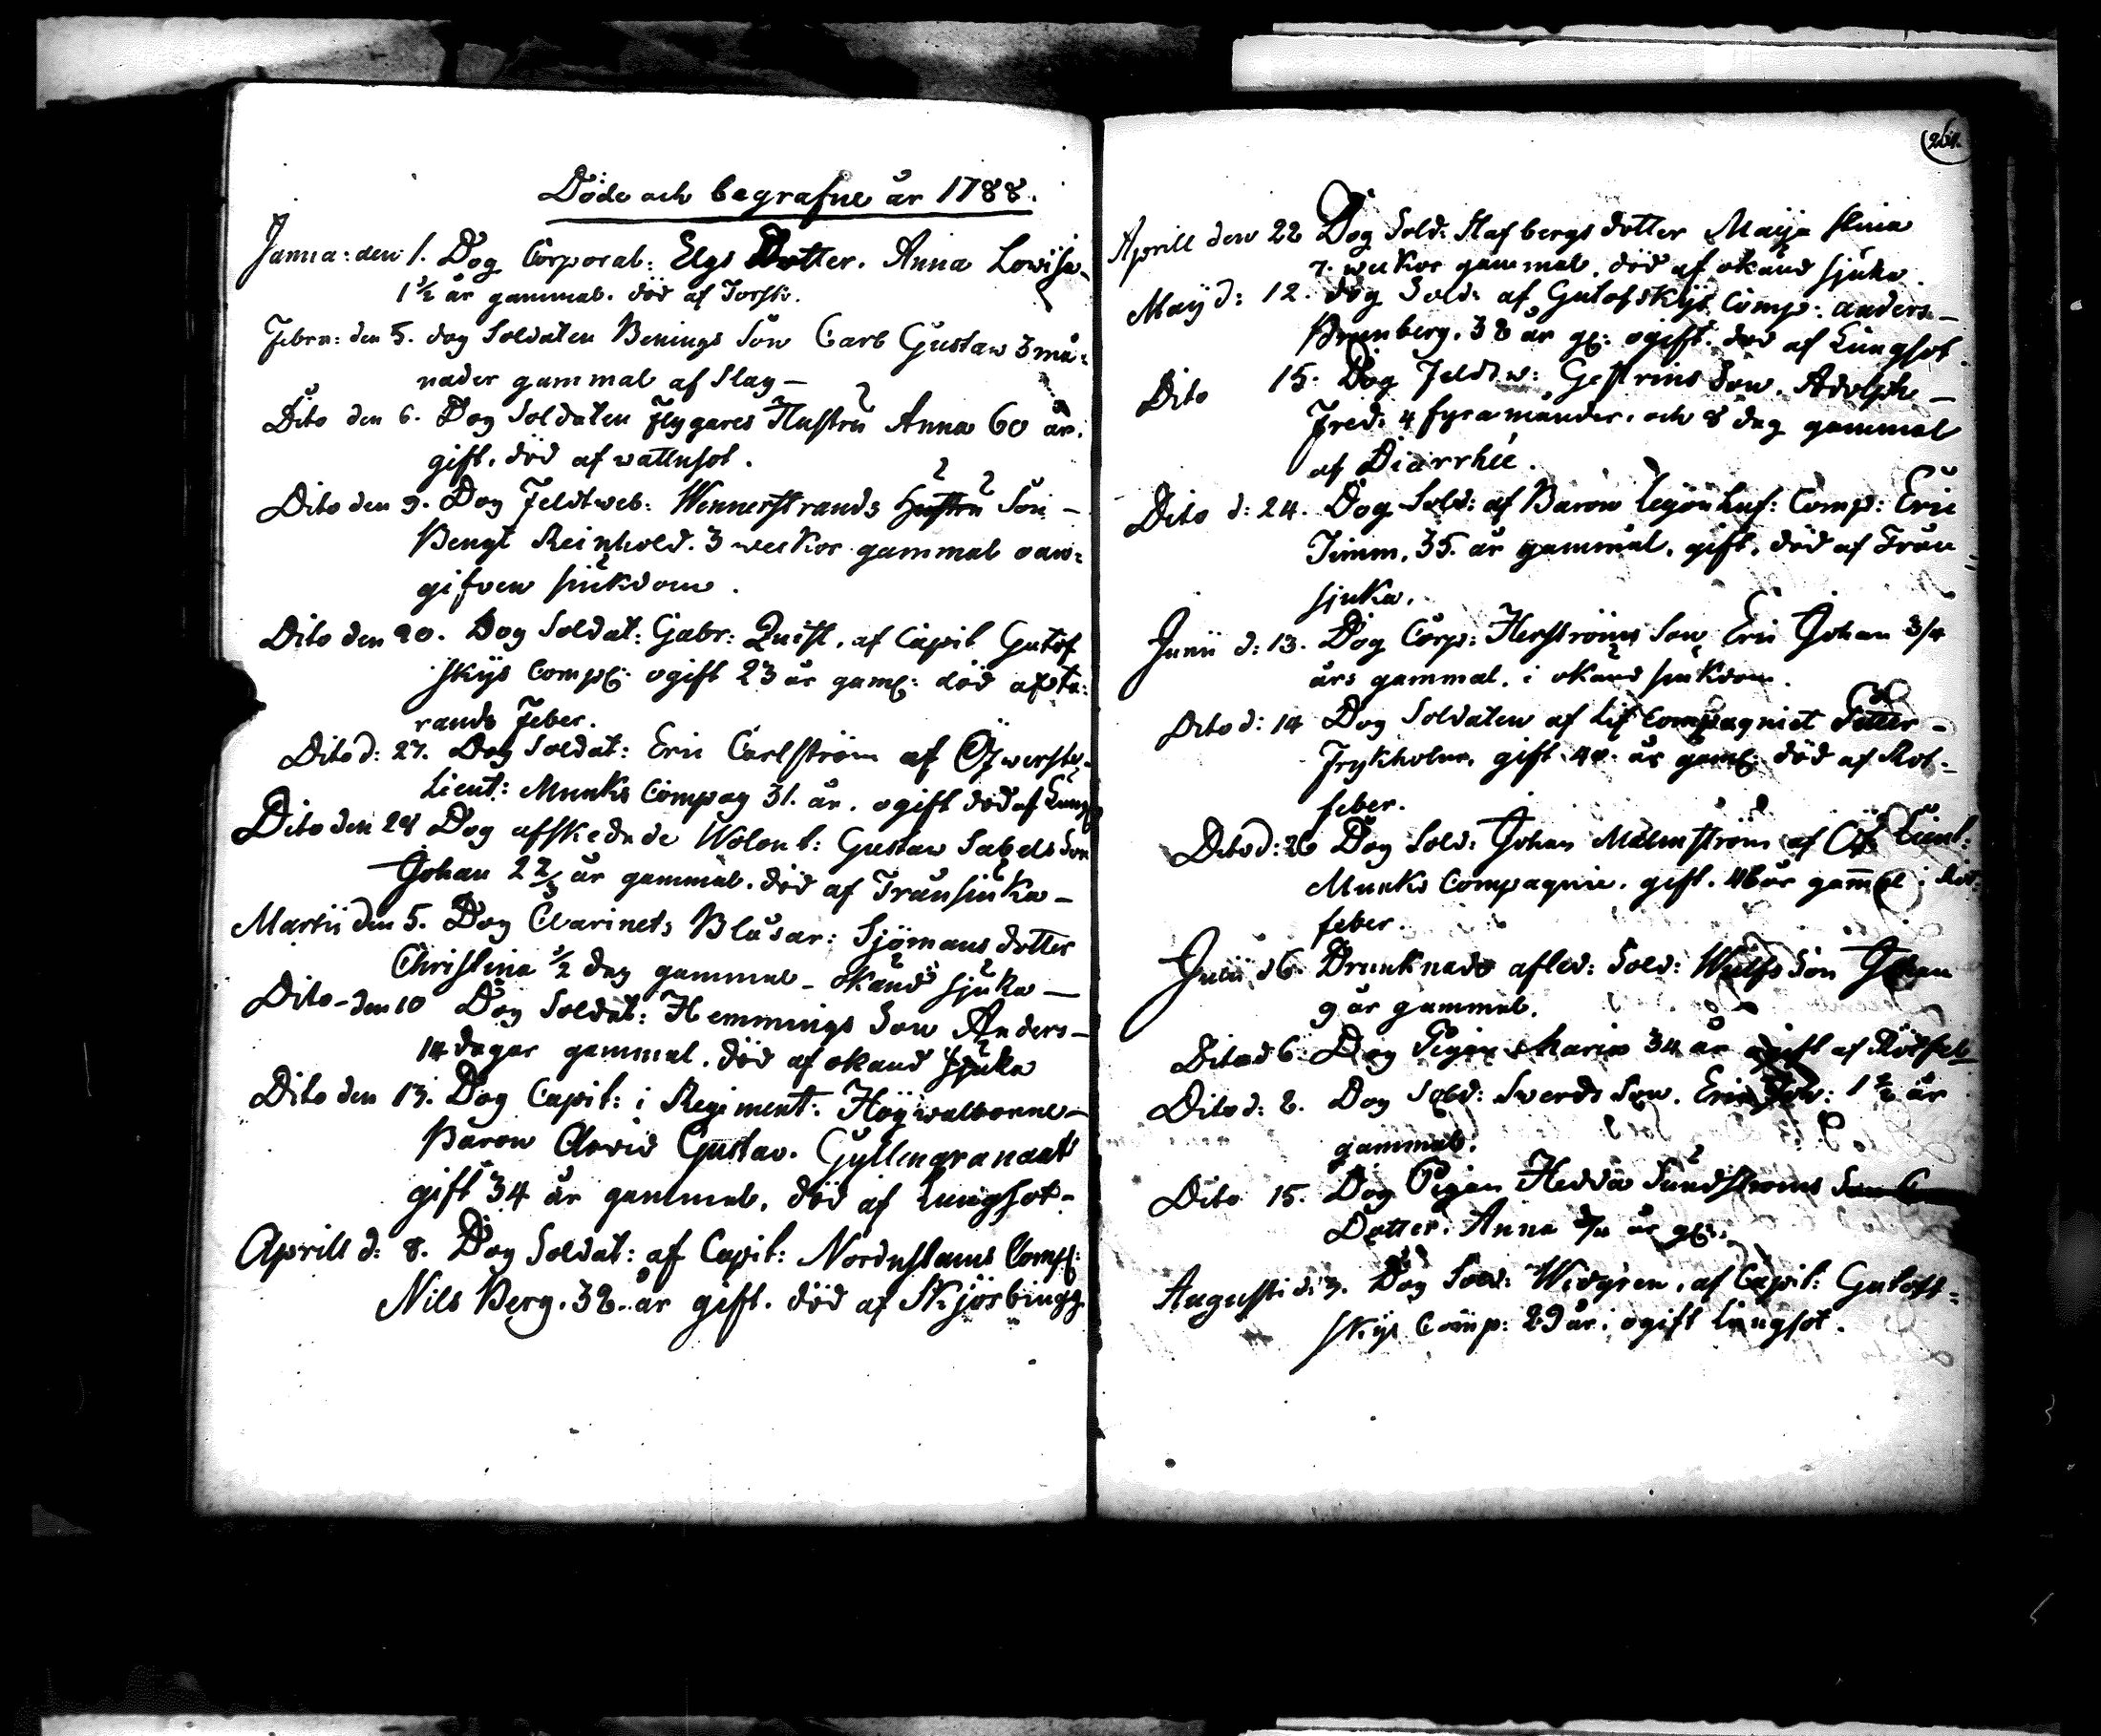 Döde och begrafne år 1788.
Janna: den 1. Dog Corporal: Elgs Dotter. Anna Lowisa
1 1/2 år gammal. död af Torsk.
Febru: den 5. dog Soldaten Benings Son Carl Gustaw 3 må=
nader gammal af Slag –
Dito den 6. Dog Soldaten Flygares Hustru Anna 60 år.
gift. död af wattusot.
Dito den 9. Dog Feldtweb: Wennerstrands Son –
Bengt Reinhold. 3 weckor gammal oan=
gifven siukdom.
Dito den 20. Dog Soldat: Gabr: Quist, af Capit Gutof
skys Comp: ogift 23 år gaml: död af tä:
rande Feber.
Dito d: 27. Dog Soldat: Eric Carlström af Öfwerste
Lieut: Munks Compag 31. år. ogift död af Lung
Dito den 28 Dog afskedade Wolont: Gustaw Sabels Son
Johan 2 2/3 år gammal. död af Transiuka –
Martii den 5. Dog Clarinets Blåsar: Sjömans dotter
Christina 1/2 dag gammal – okänd sjuka –
Dito – den 10 Dog Soldat: Hemmings Son Anders –
14 dagar gammal. död af okand sjuka
Dito den 13. Dog Capit: i Regiment: Högwalborne –
Baron Arvid Gustav. Gyllengranaat
gift 34 år gammal, död af Lungsot –
Aprill d: 8. Dog Soldat: af Capit: Nordustams Comp:
Nils Berg. 32. år gift. död af Skjörbiugg
264.
Aprill den 22 Dog Sold: Stafbergs dotter Maija Stina
7. weckor gammal. död af okänd sjuka.
Maij d: 12. dog Sold: af Gutofskys Comp: anders –
Brunberg. 38 år gl: ogift. död af Lungsot.
Dito 15. Dog Feldtw: Gestrins Son. Adolph –
Fred: 4 fyra månader. och 8 dag gammal
af Diarrhée.
Dito d: 24. Dog Sold: af Baron Lejonhuf: Comp: Eric
Timm. 35. år gammal. gift. död af Tran
sjuka.
Junii d: 13. Dog Corp: Herströms Son Eric Johan 3/4
års gammal. i okand siukdom.
Dito d: 14 Dog Soldaten af Lif Compagniet Petter –
Frykholm. gift 40. år gaml: död af Röt –
feber.
Dito d: 26 Dog Sold: Johan Malmström af Öf: Lieut:
Munks Compagnie. gift. 46 år gammal i Röt:
feber.
Julii d 6. Drunknade afled: Sold: Wulfs Son Johan
9 år gammal.
Dito d 6. Dog Pigan Maria 34 år ogift af Rötfeb
Dito d: 8. Dog Sold: Swerds Son. Eric Joh: 1 1/2 år
gammal.
Dito 15. Dog Pigan Hedda Sundstroms
Dotter. Anna 3/4 år gl:
Augusti d: 3. Dog Sold: Widgren. af Capit: Gutoff=
skys Comp: 29 år. ogift Lungsot.